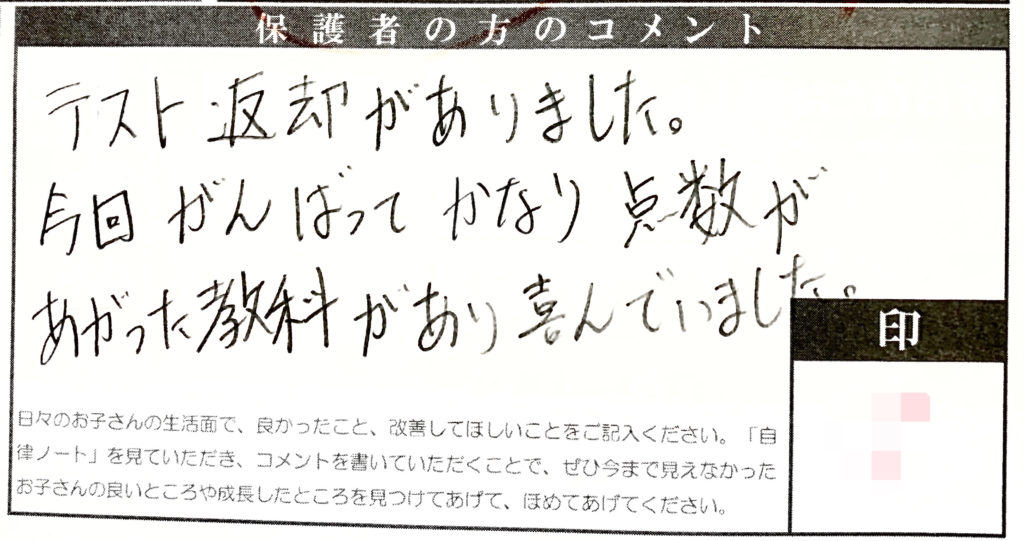 保護者の方のコメント
テスト返却がありました。
今回がんばってかなり点数が
あがった教科があり喜んでいました。
印
日々のお子さんの生活面で、良かったこと、改善してほしいことをご記入ください。「自
律ノート」を見ていただき、コメントを書いていただくことで、ぜひ今まで見えなかった
お子さんの良いところや成長したところを見つけてあげて、ほめてあげてください。